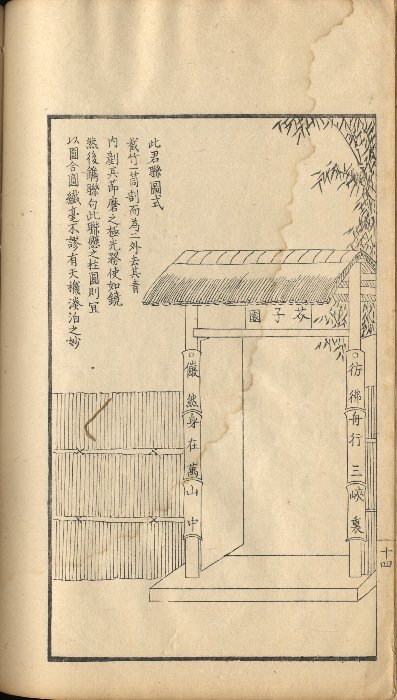 此君聯圖式
截竹一筒剖而為二外去其青
內剷其節磨之極光務使如鏡
然後鐫聯句此聯懸之柱圓則宜
以圓合圓纖毫不謬有天機湊泊之妙
芥子園
彷彿舟行三峽裏
儼然身在萬山中
十四